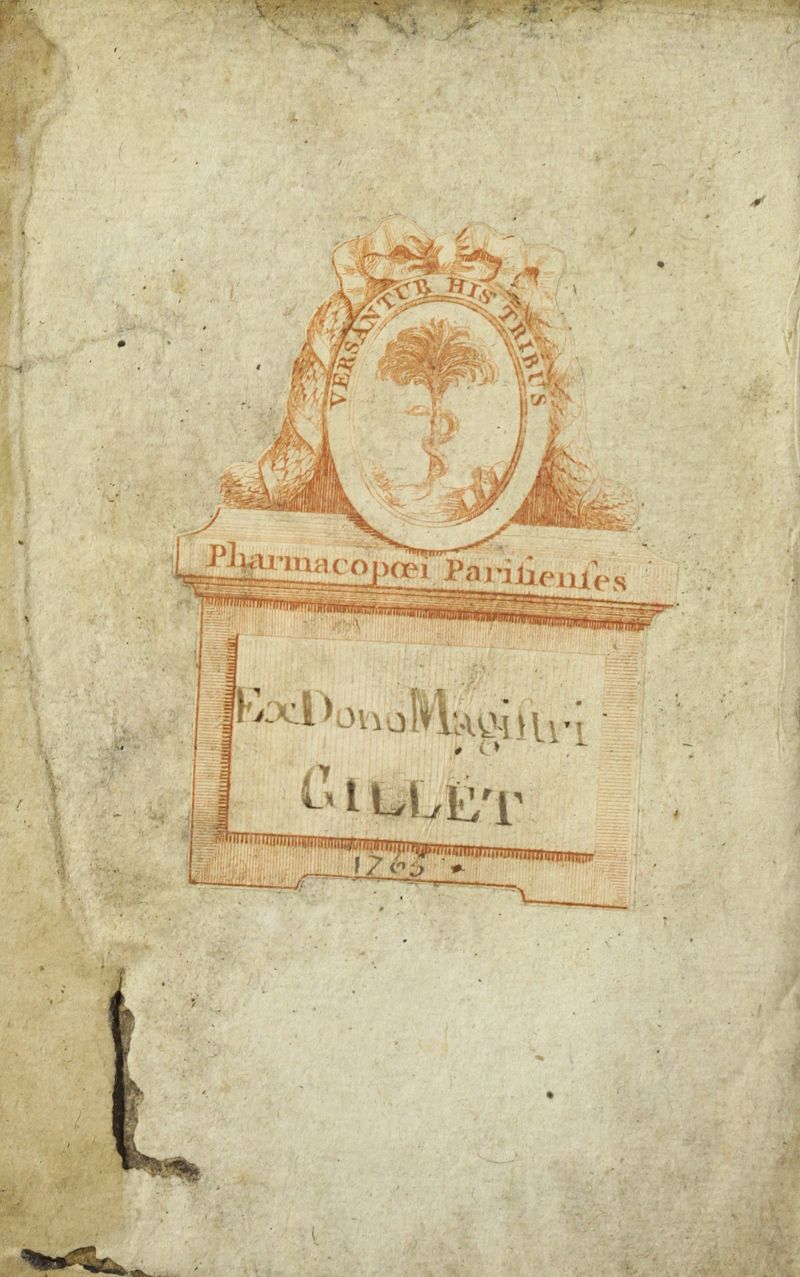 VERSANTUR HIS TRIBUS
Pharmacopœi Pariſienſes
Ex Dono Magiſtri
GILLET
1765